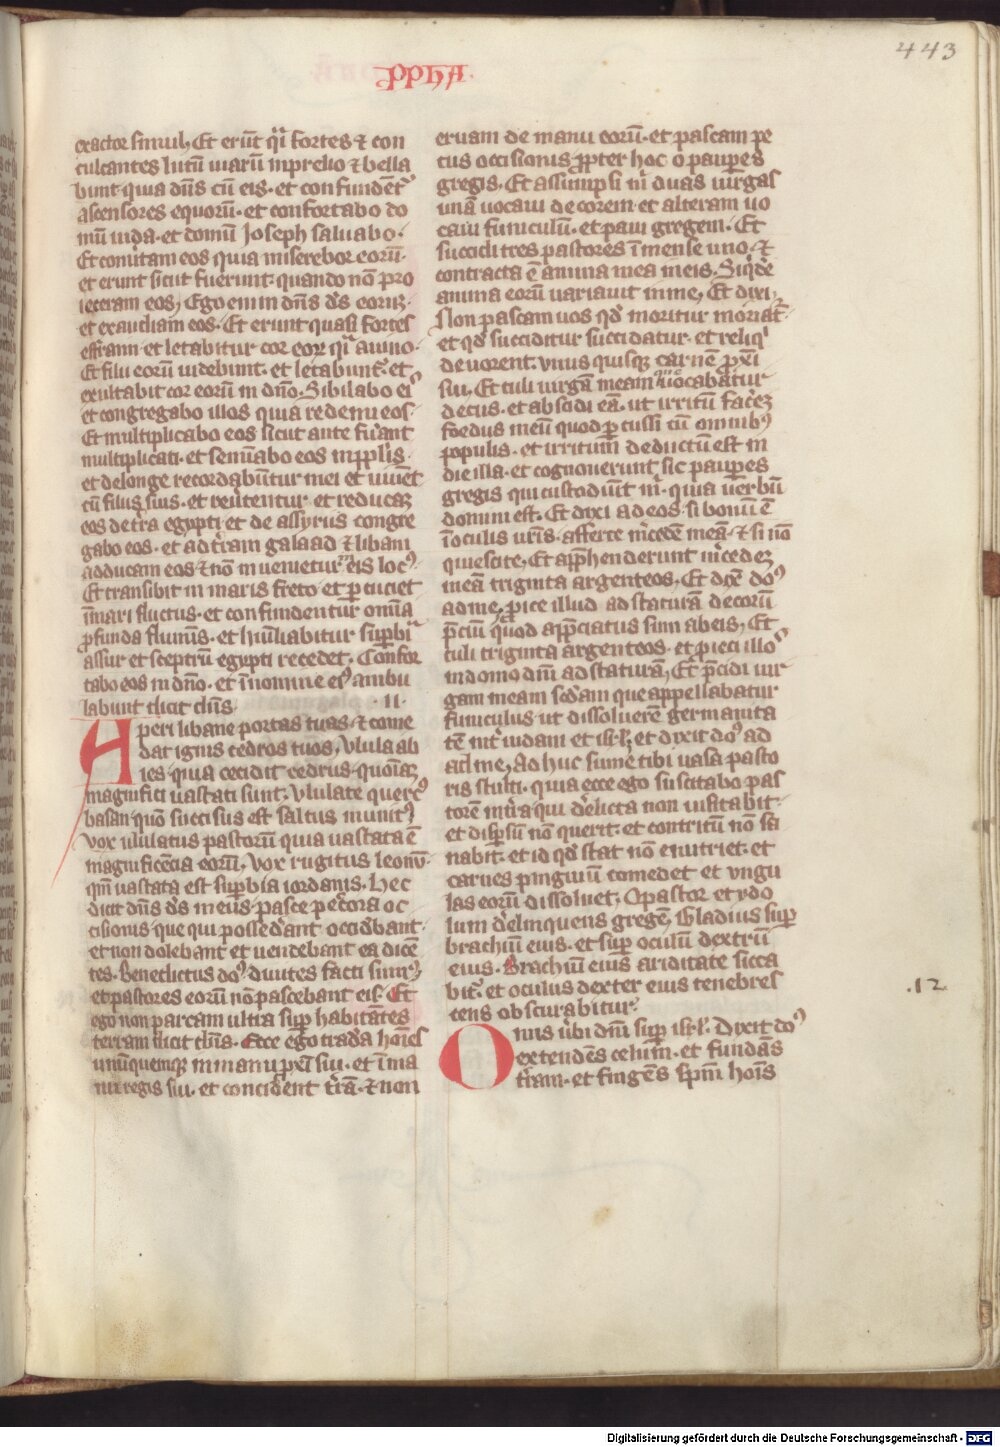 443
PPHA
exactor simul, Et erūt q̄i fortes ⁊ con
culcantes lutū viarū in prelio ⁊ bella
bunt quia dn̄s cū eis · et confundēt᷑
ascensores equorū · et confortabo do
mū iuda · et domū Joseph saluabo ·
Et cōūtam eos quia miserebor eorū ·
et erunt sicut fuerunt · quando nō pro
ieceram eos, Ego enim dn̄s ds̄ eoruꝫ ·
et exaudiam eos · Et erunt quasi fortes
effraim · et letabitur cor eoꝝ q̄i a uino ·
Et filii eorū uidebunt · et letabunt᷑ · et
exultabit cor eorū in dn̄o · Sibilabo eis
et congregabo illos quia redemi eos ·
Et multiplicabo eos sicut ante fu̓ant
multiplicati · et semīabo eos in pplis ·
et de longe recordabūtur mei et uiuēt
cū filiis suis · et reu̓tentur · et reducaꝫ
eos de tr̄a egypti et de assyriis congre
gabo eos · et ad tr̄am galaad ⁊ libani
adducam eos ⁊ nō inuenietur eis locꝰ ·
Et transibit in maris freto · et ꝑcuciet
ī mari fluctus · et confundentur om̄a
ꝓfunda flumīs · et hūiliabitur suꝑbia
assur et sceptrū egypti recedet · Confor
tabo eos in dn̄o · et ī nomine eiꝰ ambu
labunt dicit dn̄s · 11 ·
Aperi libane portas tuas · ⁊ come
dat ignis cedros tuos, Vlula ab
ies · quia cecidit cedrus · quoniaꝫ
magnifici uastati sunt, Vlulate quercꝰ
basan · quō succisus est saltus munitꝰ,
Vox ululatus pastorū quia uastata ē
magnificēcia eorū, Vox rugitus leonū ·
qm̄ uastata est suꝑbia iordanis · Hec
dicit dn̄s ds̄ meus · pasce pec̓ora oc
cisionis · que qui possed̓ant · occid̓bant ·
et non dolebant et uendebant ea dicē
tes · Benedictus doꝰ diuites facti sumꝰ,
et pastores eorū nō pascebant eis · Et
ego non parcam ultra suꝑ habitātes
terram dicit dn̄s · Ecce ego trad̓a hoīes
unūquemqꝫ in manu prox̄ sui · et ī ma
nu regis sui · et concident tr̄ā · ⁊ non
eruam de manu eorū · et pascam pe
cus occisionis ꝓpter hoc o pauꝑes
gregis · Et assūmpsi m̄ duas uirgas
unā uocaui decorem · et alteram uo
caui funiculū · et paui gregem · Et
succidi tres pastores ī mense uno · ⁊
contracta ē anima mea in eis · Siqͥdē
anima eorū uariauit in me, Et dixi,
Non pascam uos qd̄ moritur moriat᷑ ·
et qd̄ succiditur succidatur · et reliqͥ
deuorent · vnus quisqꝫ carnē ꝓxī
sui, Et tuli uirgā meam que uocabatur
decus · et abscidi eā · ut irritū fac̓eꝫ
foedus meū quod ꝑcussi cū omnibꝰ
populis · et irritum deductū est in
die illa · et cognouerunt sic pauꝑes
gregis qui custodiūt m̄ · quia uerbū
domini est · Et dixi ad eos · si bonū ē
ī oculis ur̄is · afferte m̓cedē meā · ⁊ si nō
quiescite, Et app̄henderunt m̓cedeꝫ
meā triginta argenteos, Et dix̄ doꝰ
ad me, ꝓice illud ad staturā decorū
p̄ciū, quod app̄ciatus sum ab eis, Et
tuli triginta argenteos · et ꝓieci illoˢ
in domo dn̄i ad staturā, Et p̄cidi uir
gam meam sc̄dam que appellabatur
funiculus · ut dissoluerē germanita
tē int̓ iudam et isrl̄, et dixit doꝰ ad
ad me, Adhuc sume tibi uasa pasto
ris stulti · quia ecce ego suscitabo pas
torē in tr̄a qui d̓elicta non uisitabit ·
et disꝑsū nō querit · et contritū nō sa
nabit · et id qd̄ stat nō enutriet · et
carnes pinguiū comedet et ungu
las eorū dissoluet, O pastor et ydo
lum d̓elinquens gregē, Gladius suꝑ
brachiū eius · et suꝑ oculū dextrū
eius · Brachiū eiꝰ ariditate sicca
bit᷑ · et oculus dexter eius tenebres
cens obscurabitur ·
· 12 ·
Onus u̓bi dn̄i suꝑ isrl̄ · Dixit doꝰ
extendēs celum · et fundās
tr̄am · et fingēs spm̄ hoīs
Digitalisierung gefördert durch die Deutsche Forschungsgemeinschaft - DFG